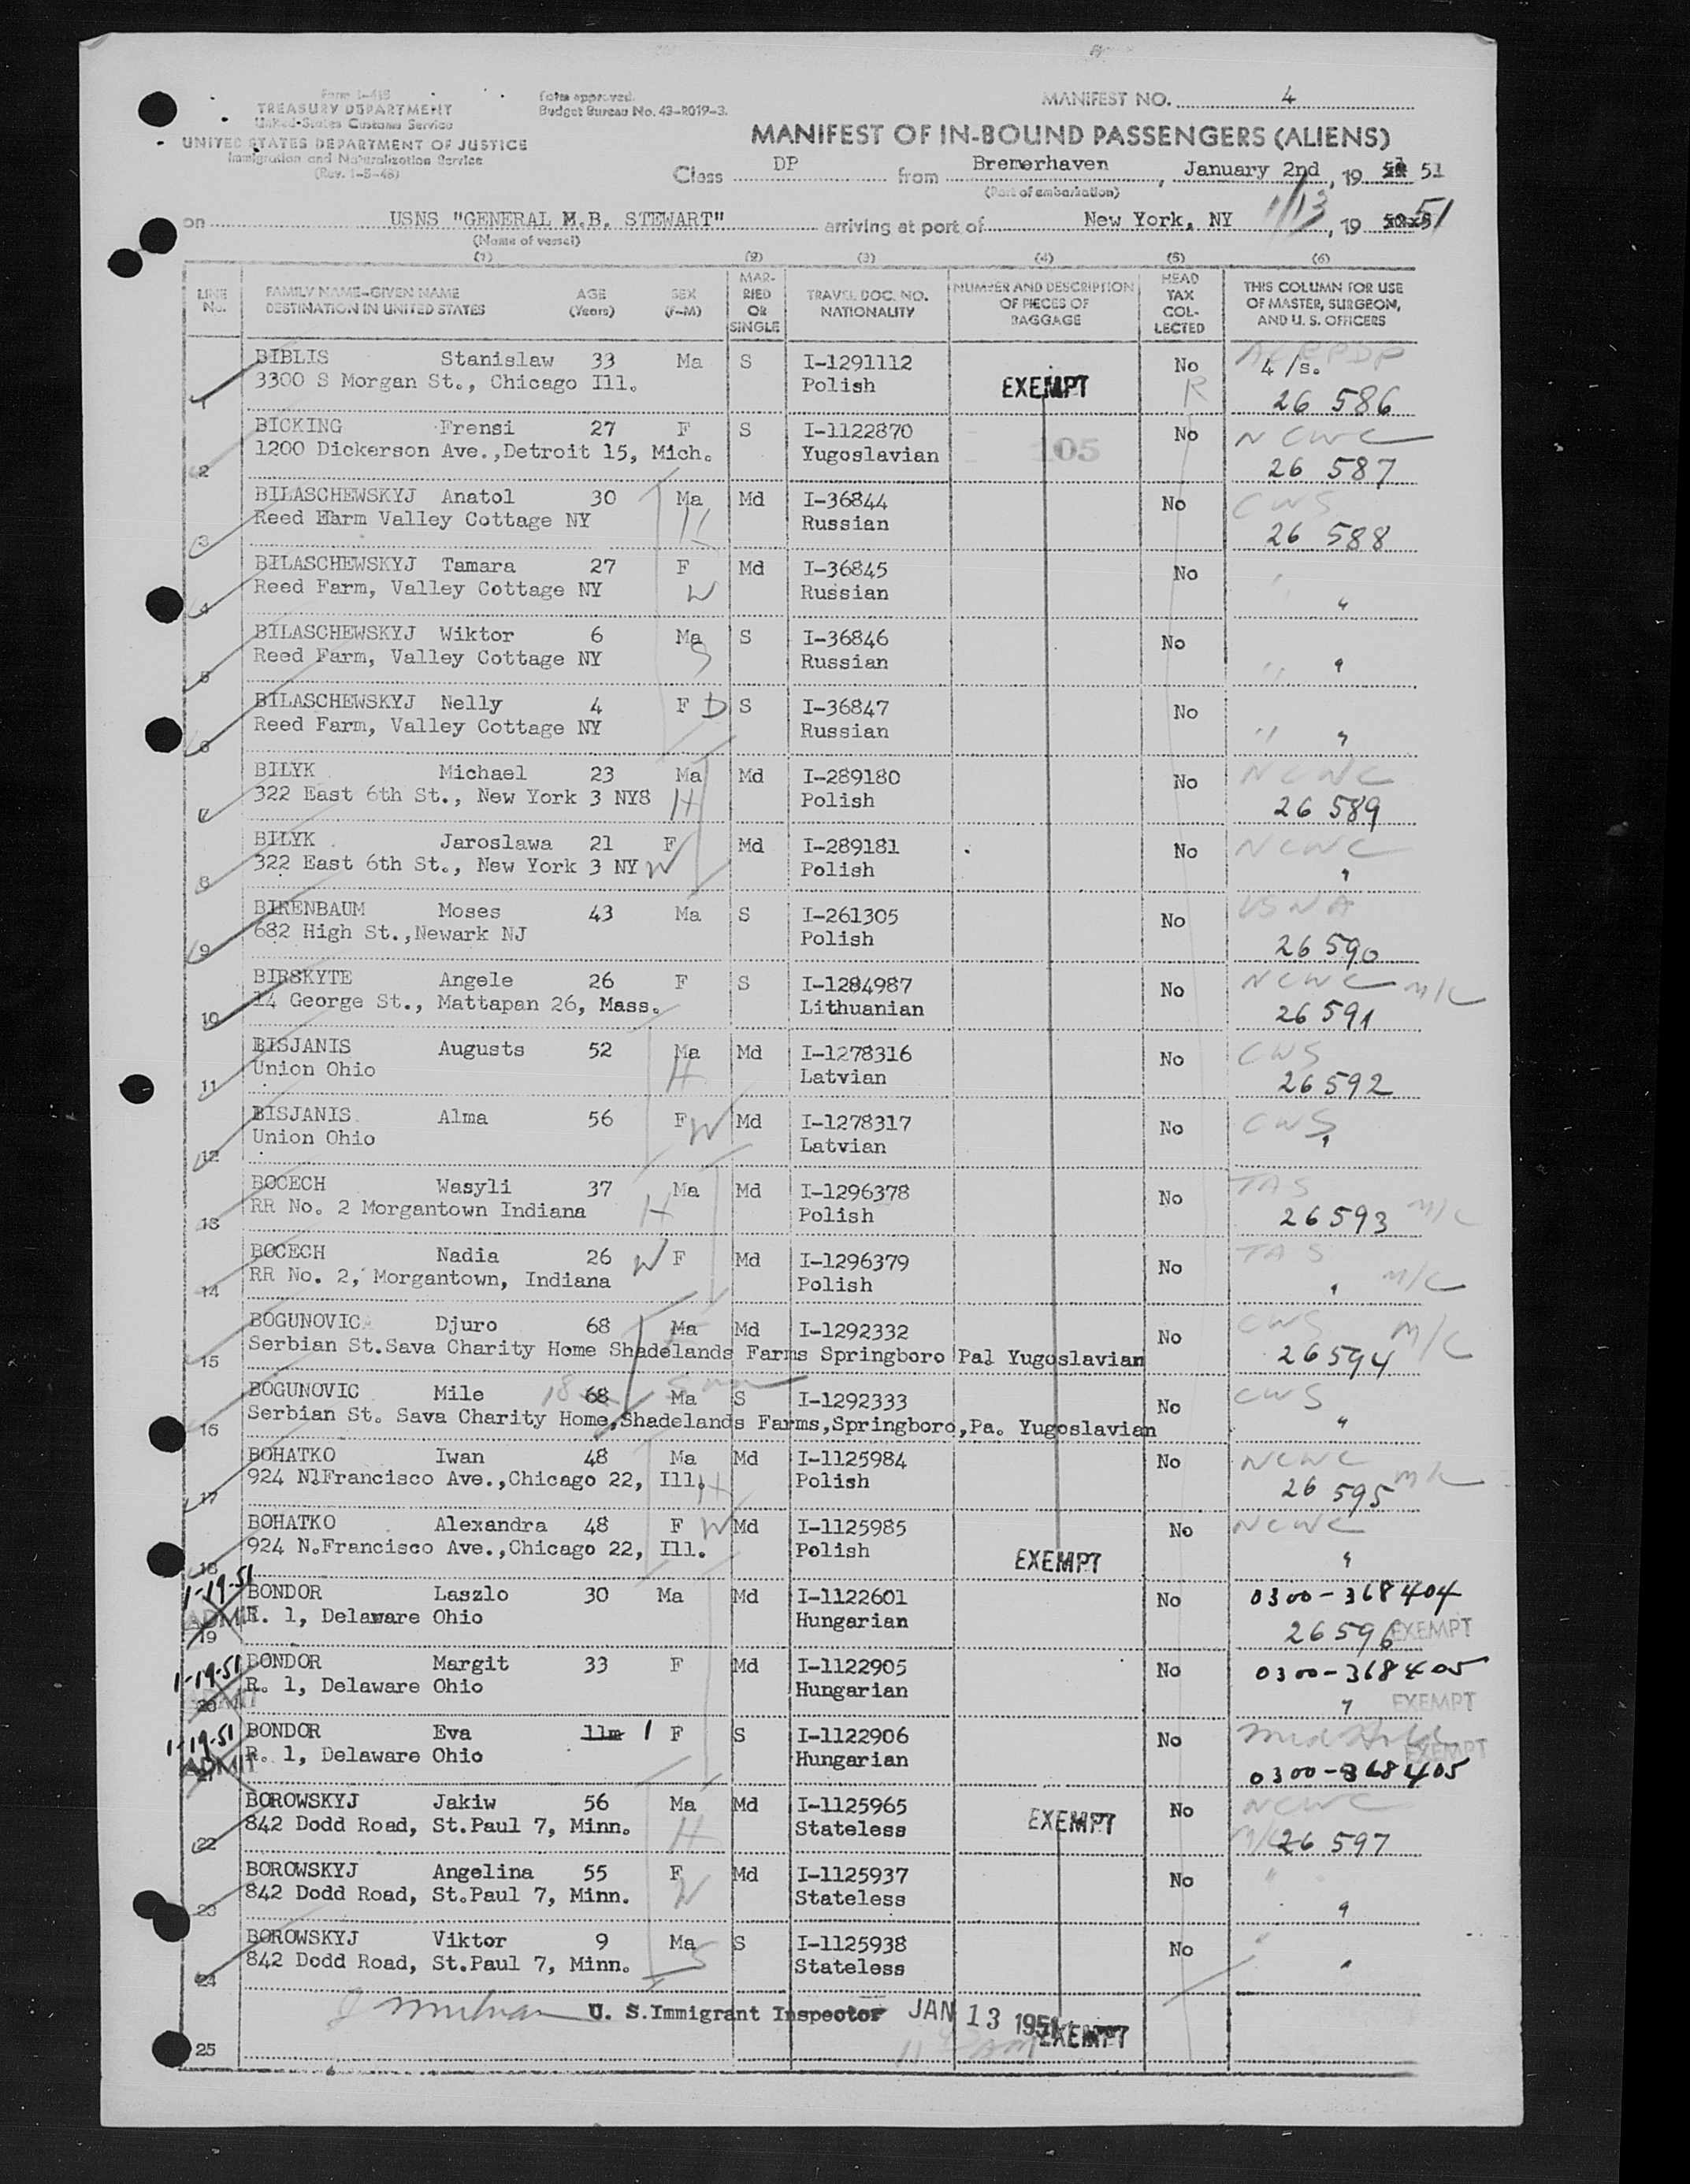 Form I-418
TREASURY DEPARTMENT
United States Customs Service
UNITED STATES DEPARTMENT OF JUSTICE
Immigration and Naturalization Service
(Rev. 1-5-48)
Form approved.
Budget Bureau No. 43-R019-3.
MANIFEST NO. 4
MANIFEST OF IN-BOUND PASSENGERS (ALIENS)
Class DP from Bremerhaven, January 2nd, 19 51
(Port of embarkation)
on USNS "GENERAL M.B. STEWART" arriving at port of New York, NY 1/13, 19 51
(Name of vessel)
(1) (2) (3) (4) (5) (6)
LINE No. FAMILY NAME-GIVEN NAME DESTINATION IN UNITED STATES AGE (Years) SEX (F-M) MARRIED OR SINGLE TRAVEL DOC. NO. NATIONALITY NUMBER AND DESCRIPTION OF PIECES OF BAGGAGE HEAD TAX COLLECTED THIS COLUMN FOR USE OF MASTER, SURGEON, AND U. S. OFFICERS
1 BIBLIS Stanislaw 33 Ma S I-1291112 No 4/s.
3300 S Morgan St., Chicago Ill. Polish EXEMPT R 26 586
2 BICKING Frensi 27 F S I-1122870 No NCWC
1200 Dickerson Ave.,Detroit 15, Mich. Yugoslavian 105 26 587
3 BILASCHEWSKYJ Anatol 30 Ma Md I-36844 No CWS
Reed Farm Valley Cottage NY H Russian 26 588
4 BILASCHEWSKYJ Tamara 27 F Md I-36845 No
Reed Farm, Valley Cottage NY W Russian "
5 BILASCHEWSKYJ Wiktor 6 Ma S I-36846 No
Reed Farm, Valley Cottage NY S Russian " "
6 BILASCHEWSKYJ Nelly 4 F D S I-36847 No
Reed Farm, Valley Cottage NY Russian " "
7 BILYK Michael 23 Ma Md I-289180 No NCWC
322 East 6th St., New York 3 NY8 H Polish 26 589
8 BILYK Jaroslawa 21 F Md I-289181 No NCWC
322 East 6th St., New York 3 NY W Polish "
9 BIRENBAUM Moses 43 Ma S I-261305 No USNA
682 High St.,Newark NJ Polish 26 590
10 BIRSKYTE Angele 26 F S I-1284987 No NCWC M/C
14 George St., Mattapan 26, Mass. Lithuanian 26 591
11 BISJANIS Augusts 52 Ma Md I-1278316 No CWS
Union Ohio H Latvian 26 592
12 BISJANIS Alma 56 F W Md I-1278317 No CWS
Union Ohio Latvian "
13 BOCECH Wasyli 37 Ma Md I-1296378 No TAS
RR No. 2 Morgantown Indiana H Polish 26 593 M/C
14 BOCECH Nadia 26 W F Md I-1296379 No TAS
RR No. 2, Morgantown, Indiana Polish " M/C
15 BOGUNOVIC Djuro 68 Ma Md I-1292332 No CWS M/C
Serbian St.Sava Charity Home Shadelands Farms Springboro Pa Yugoslavian 26594
16 BOGUNOVIC Mile 18 68 Ma S I-1292333 No CWS
Serbian St. Sava Charity Home,Shadelands Farms,Springboro,Pa. Yugoslavian "
17 BOHATKO Iwan 48 Ma Md I-1125984 No NCWC
924 N.Francisco Ave.,Chicago 22, Ill. H Polish 26 595 M/C
18 BOHATKO Alexandra 48 F W Md I-1125985 No NCWC
924 N.Francisco Ave.,Chicago 22, Ill. Polish EXEMPT "
1-19-51 BONDOR Laszlo 30 Ma Md I-1122601 No 0300-368404
ADMIT 19 R. 1, Delaware Ohio Hungarian 26 596 EXEMPT
1-19-51 BONDOR Margit 33 F Md I-1122905 No 0300-368405
ADMIT 20 R. 1, Delaware Ohio Hungarian " EXEMPT
1-19-51 BONDOR Eva 11m 1 F S I-1122906 No Med Hold
ADMIT 21 R. 1, Delaware Ohio Hungarian EXEMPT 0300-368405
22 BOROWSKYJ Jakiw 56 Ma Md I-1125965 No NCWC
842 Dodd Road, St.Paul 7, Minn. H Stateless EXEMPT M/C 26 597
23 BOROWSKYJ Angelina 55 F Md I-1125937 No "
842 Dodd Road, St.Paul 7, Minn. W Stateless "
24 BOROWSKYJ Viktor 9 Ma S I-1125938 No "
842 Dodd Road, St.Paul 7, Minn. S Stateless "
U. S. Immigrant Inspector JAN 13 1951
25 EXEMPT